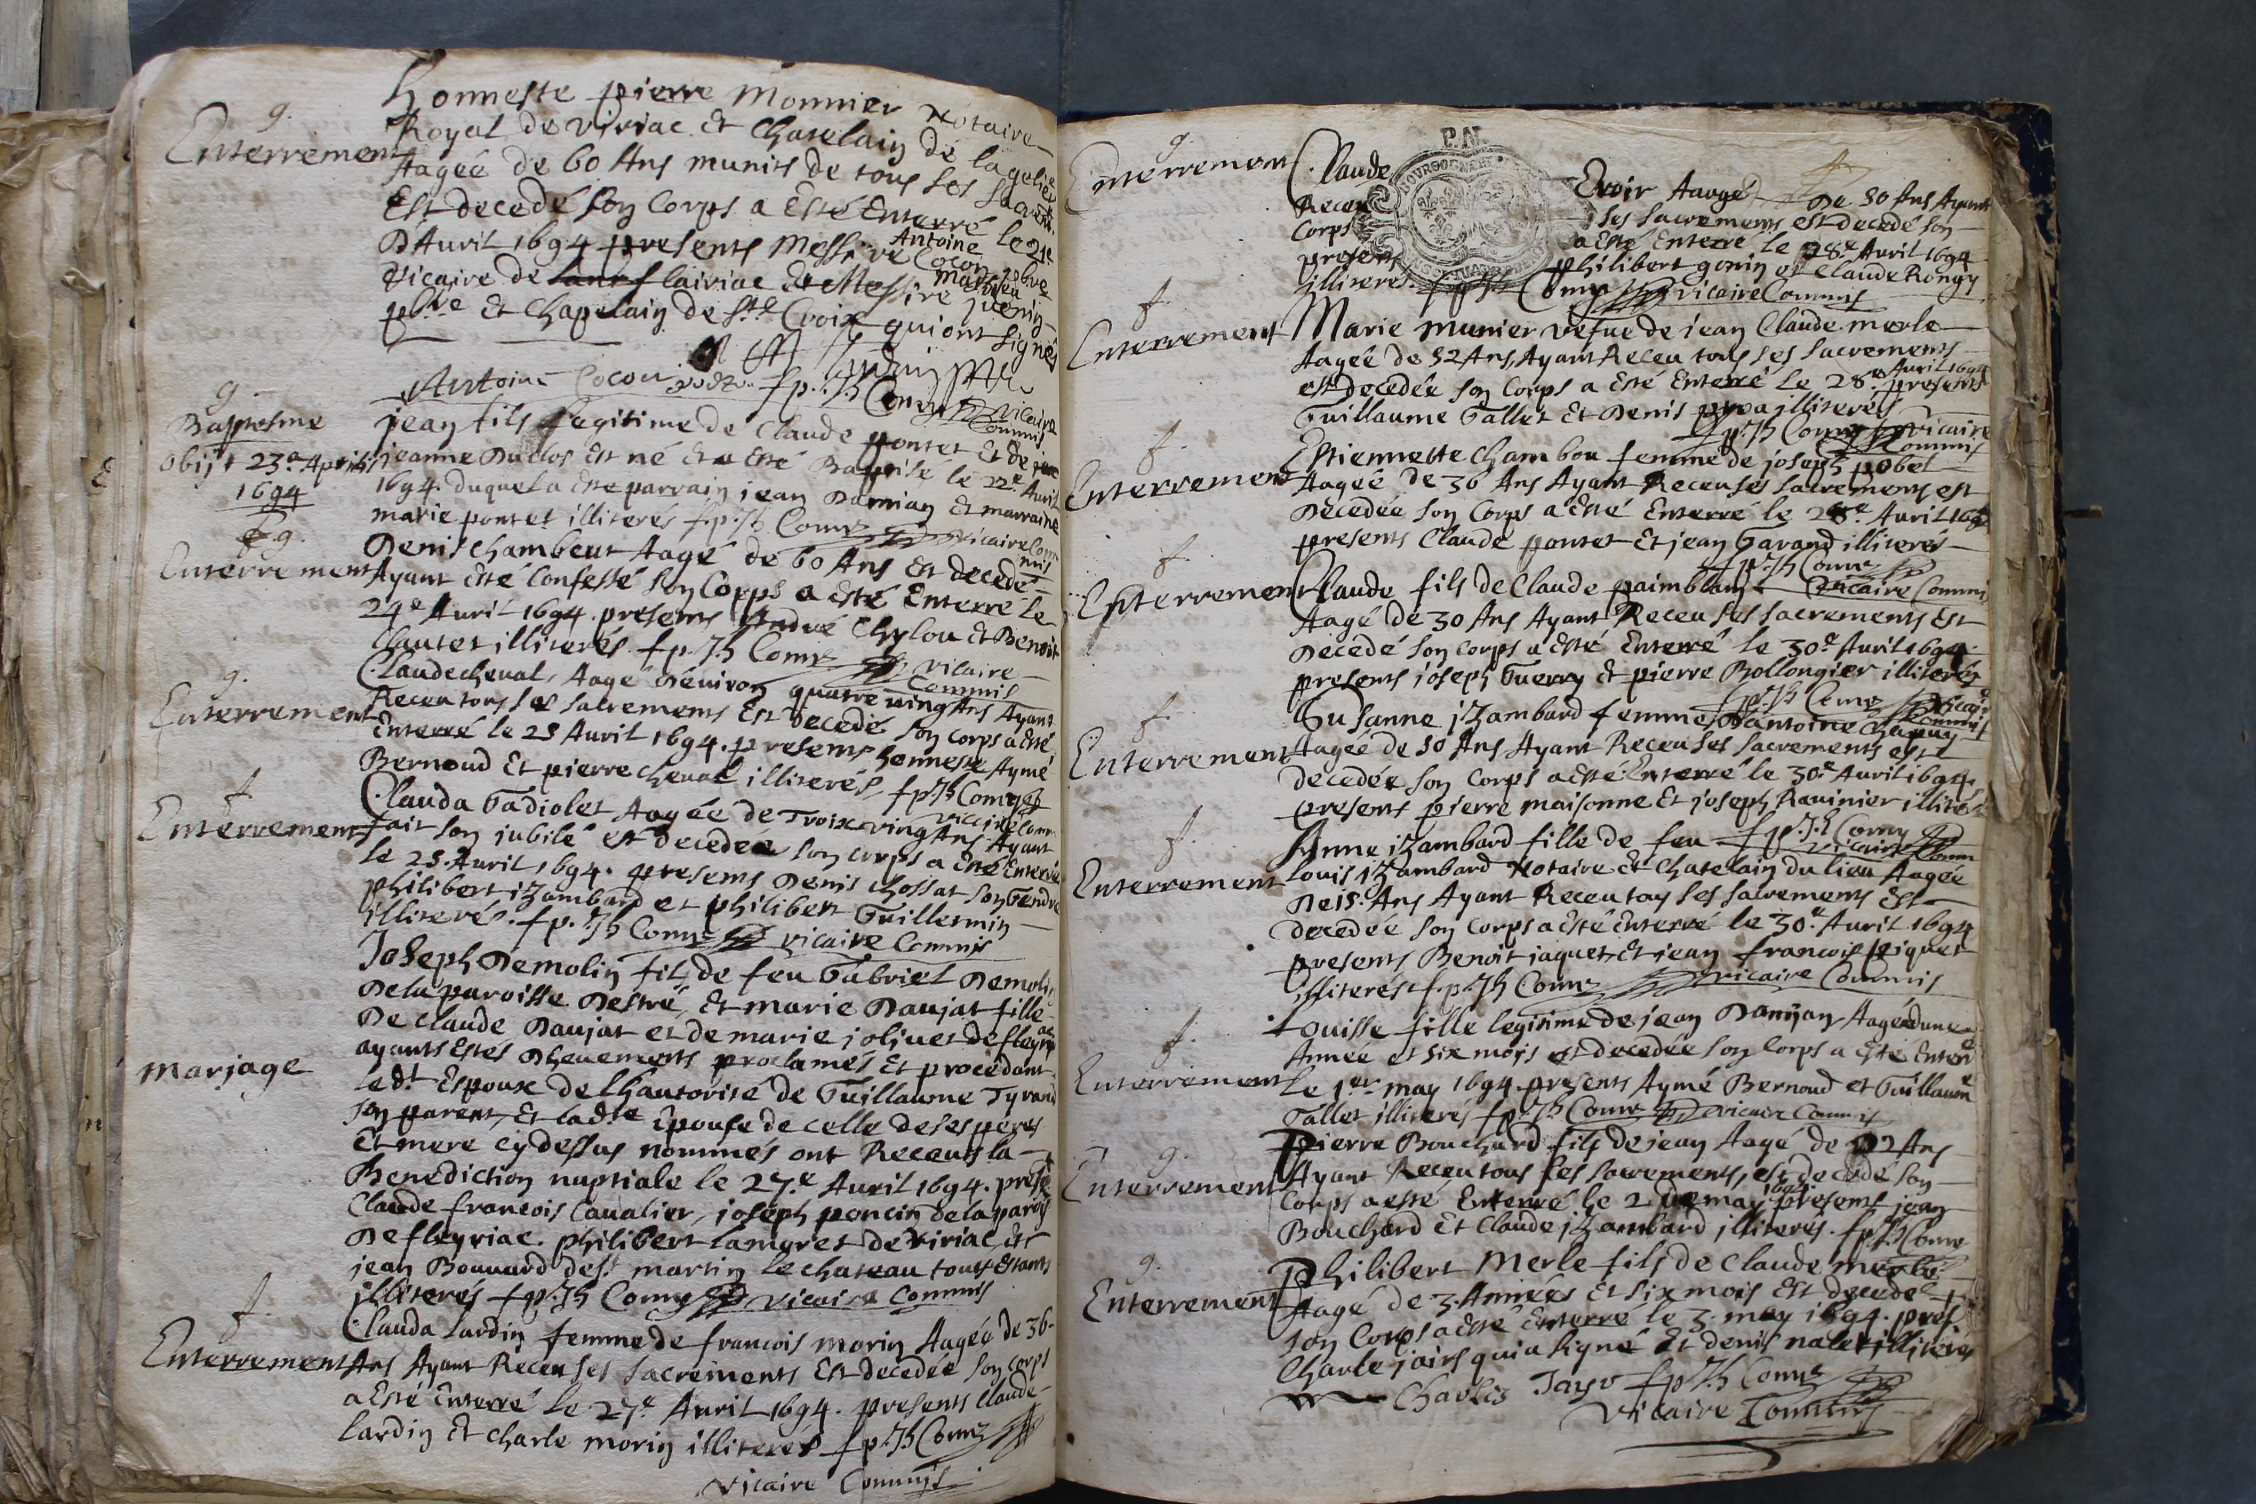 g.
Enterrement
Honneste pierre Monnier Notaire
Royal de viriac Et Chatelain de la gelier
Aagéé de 60 Ans munits de tous ses Sacrem.
Est decedé son Corps a Esté Enterré le 21e
D'Auril 1694 presents Messire Antoine Cocon
vicaire de flairiac Et Messire Mathieu Juenin
pbre et Chapelain de Ste Croix qui ont signés
Antoine Cocon f. p. Jh Comz vicaire Commis
g.
Baptesme
obijt 23a Aprilis
1694
jean fils legitime de Claude pontet Et de
jeanne Duclos Est né Et a Esté Baptisé le 22e Auril
1694. duquel a Esté parrain jean Damian Et marraine
marie pontet illiterés f. p. Jh Comz vicaire Commis
g.
Enterrement
Denis chambeut Aagé de 60 Ans Est decedé
Ayant Esté Confessé son Corps a Esté Enterré le
24e Auril 1694. presents André Chylou Et Benoit
Clautet illiterés. f p. Jh Comz vicaire Commis
g.
Enterrement
Claude cheual, Aagé denuiron quatre vingt Ans Ayant
Receu tous ses sacrements Est decedé son Corps a Esté
Enterré le 25 Auril 1694. presents honneste Aymé
Bernoud Et pierre cheual illiterés. f p Jh Comz vicaire Com
f.
Enterrement
Clauda Gadiolet Aagéé de Troix ving Ans Ayant
fait son jubilé est decedéé son corps a Esté Enterré
le 25. Auril 1694. presents Denis Chossat son Gendre
philibert izambard et philibert Guillermin
illiterés. f p. Jh Comz vicaire Commis
Mariage
Joseph Demolin fils de feu Gabriel Demolin
De la paroisse Destré, Et marie Daujat fille
De Claude Daujat et de marie joliuet de fleyriac
ayants Estés Dheuements proclamés Et procedant
le dt Espoux de lhautorité de Guillaume Tyrand
son parent, Et la dte Epouse de celle de ses peres
Et mere cy dessus nommés ont Receus la
Benediction nuptiale le 27.e Auril 1694. prese
Claude francois Caualier, joseph poncin de la parois
De fleyriac. philibert lamuret de viriac Et
jean Bouuard de st martin le chateau tous Estants
illiterés f p. Jh Comz vicaire Commis
f.
Enterrement
Clauda lardin femme de francois morin Aagéé de 36
Ans Ayant Receu ses sacrements Est decedéé son corps
a Esté Enterré le 27e Auril 1694. presents Claude
lardin Et Charle morin illiterés f p. Jh Comz
vicaire Commis
P.N.
BOURGOGNE
g.
Enterrement
Claude Euoir Aaagé De 50 Ans Ayant
Receu ses sacrements est decedé son
Corps a Esté Enterré le 28.e Auril 1694
presents philibert gonin et Claude Rongy
illiterés. f p Jh Comz vicaire Commis
f.
Enterrement
Marie Munier vefue de jean Claude merle
Aagéé de 52 Ans, Ayant Receu tous ses sacrements
est decedéé son Corps a Esté Enterré le 28.e Auril 1694 presents
Guillaume Gallet Et Denis illiterés
f p. Jh Comz vicaire Commis
f.
Enterrement
Etiennette Chambou femme de joseph pobel
Aagéé de 36 Ans Ayant Receu ses sacrements est
Decedéé son Corps a Esté Enterré le 28.e Auril 169
presents Claude pontet Et jean Garand illiterés
f. p. Jh Comz vicaire Commi
f.
Enterrement
Claude fils de Claude paimblanc
Aagé de 30 Ans Ayant Receu ses sacrements Est
Decedé son corps a Esté Enterré le 30e Auril 1694.
presents joseph Guerry Et pierre Bollongier illiterés
f p. Jh Comz vicaire Commis
f.
Enterrement
Susanne izambard femme D'antoine Chanuy
Aagéé de 50 Ans Ayant Receu ses sacrements est
decedéé son Corps a Esté Enterré le 30.e Auril 1694
presents pierre maisonne Et joseph Rauinier illiter
f. p. J. h Comz vicaire Comm
f.
Enterrement
Anne izambard fille de feu
louis izambard Notaire Et Chatelain du lieu Aagéé
De 15. Ans Ayant Receu tous ses sacrements Est
decedéé son Corps a Esté Enterré le 30.e Auril 1694
presents Benoit jaquet, Et jean francois piquet
illiterés f. p. Jh Comz vicaire Commis
f.
Enterrement
Louisse fille legitime de jean Damyan Aagéé dune
Année et six mois est decedéé son Corps a Esté Enterré
le 1er may 1694 presents Aymé Bernoud et Guillaume
Gallet illiterés f p. Jh Comz vicaire Commis
g.
Enterrement
Pierre Bouchard fils de jean Aagé de 22 Ans
Ayant Receu tous ses sacrements, est decedé son
Corps a esté Enterré le 2 de may 1694 presents jean
Bouchard Et Claude izambard illiterés. f p. Jh Comz
g.
Enterrement
Philibert Merle fils de Claude merle
Aagé de 3. Années Et six mois Est decedé
son Corps a Esté Enterré le 3. may 1694. pres
Charle jairs qui a signé Et denis nalet illiterés
Charles Jayr f p Jh Comz
vicaire Commis